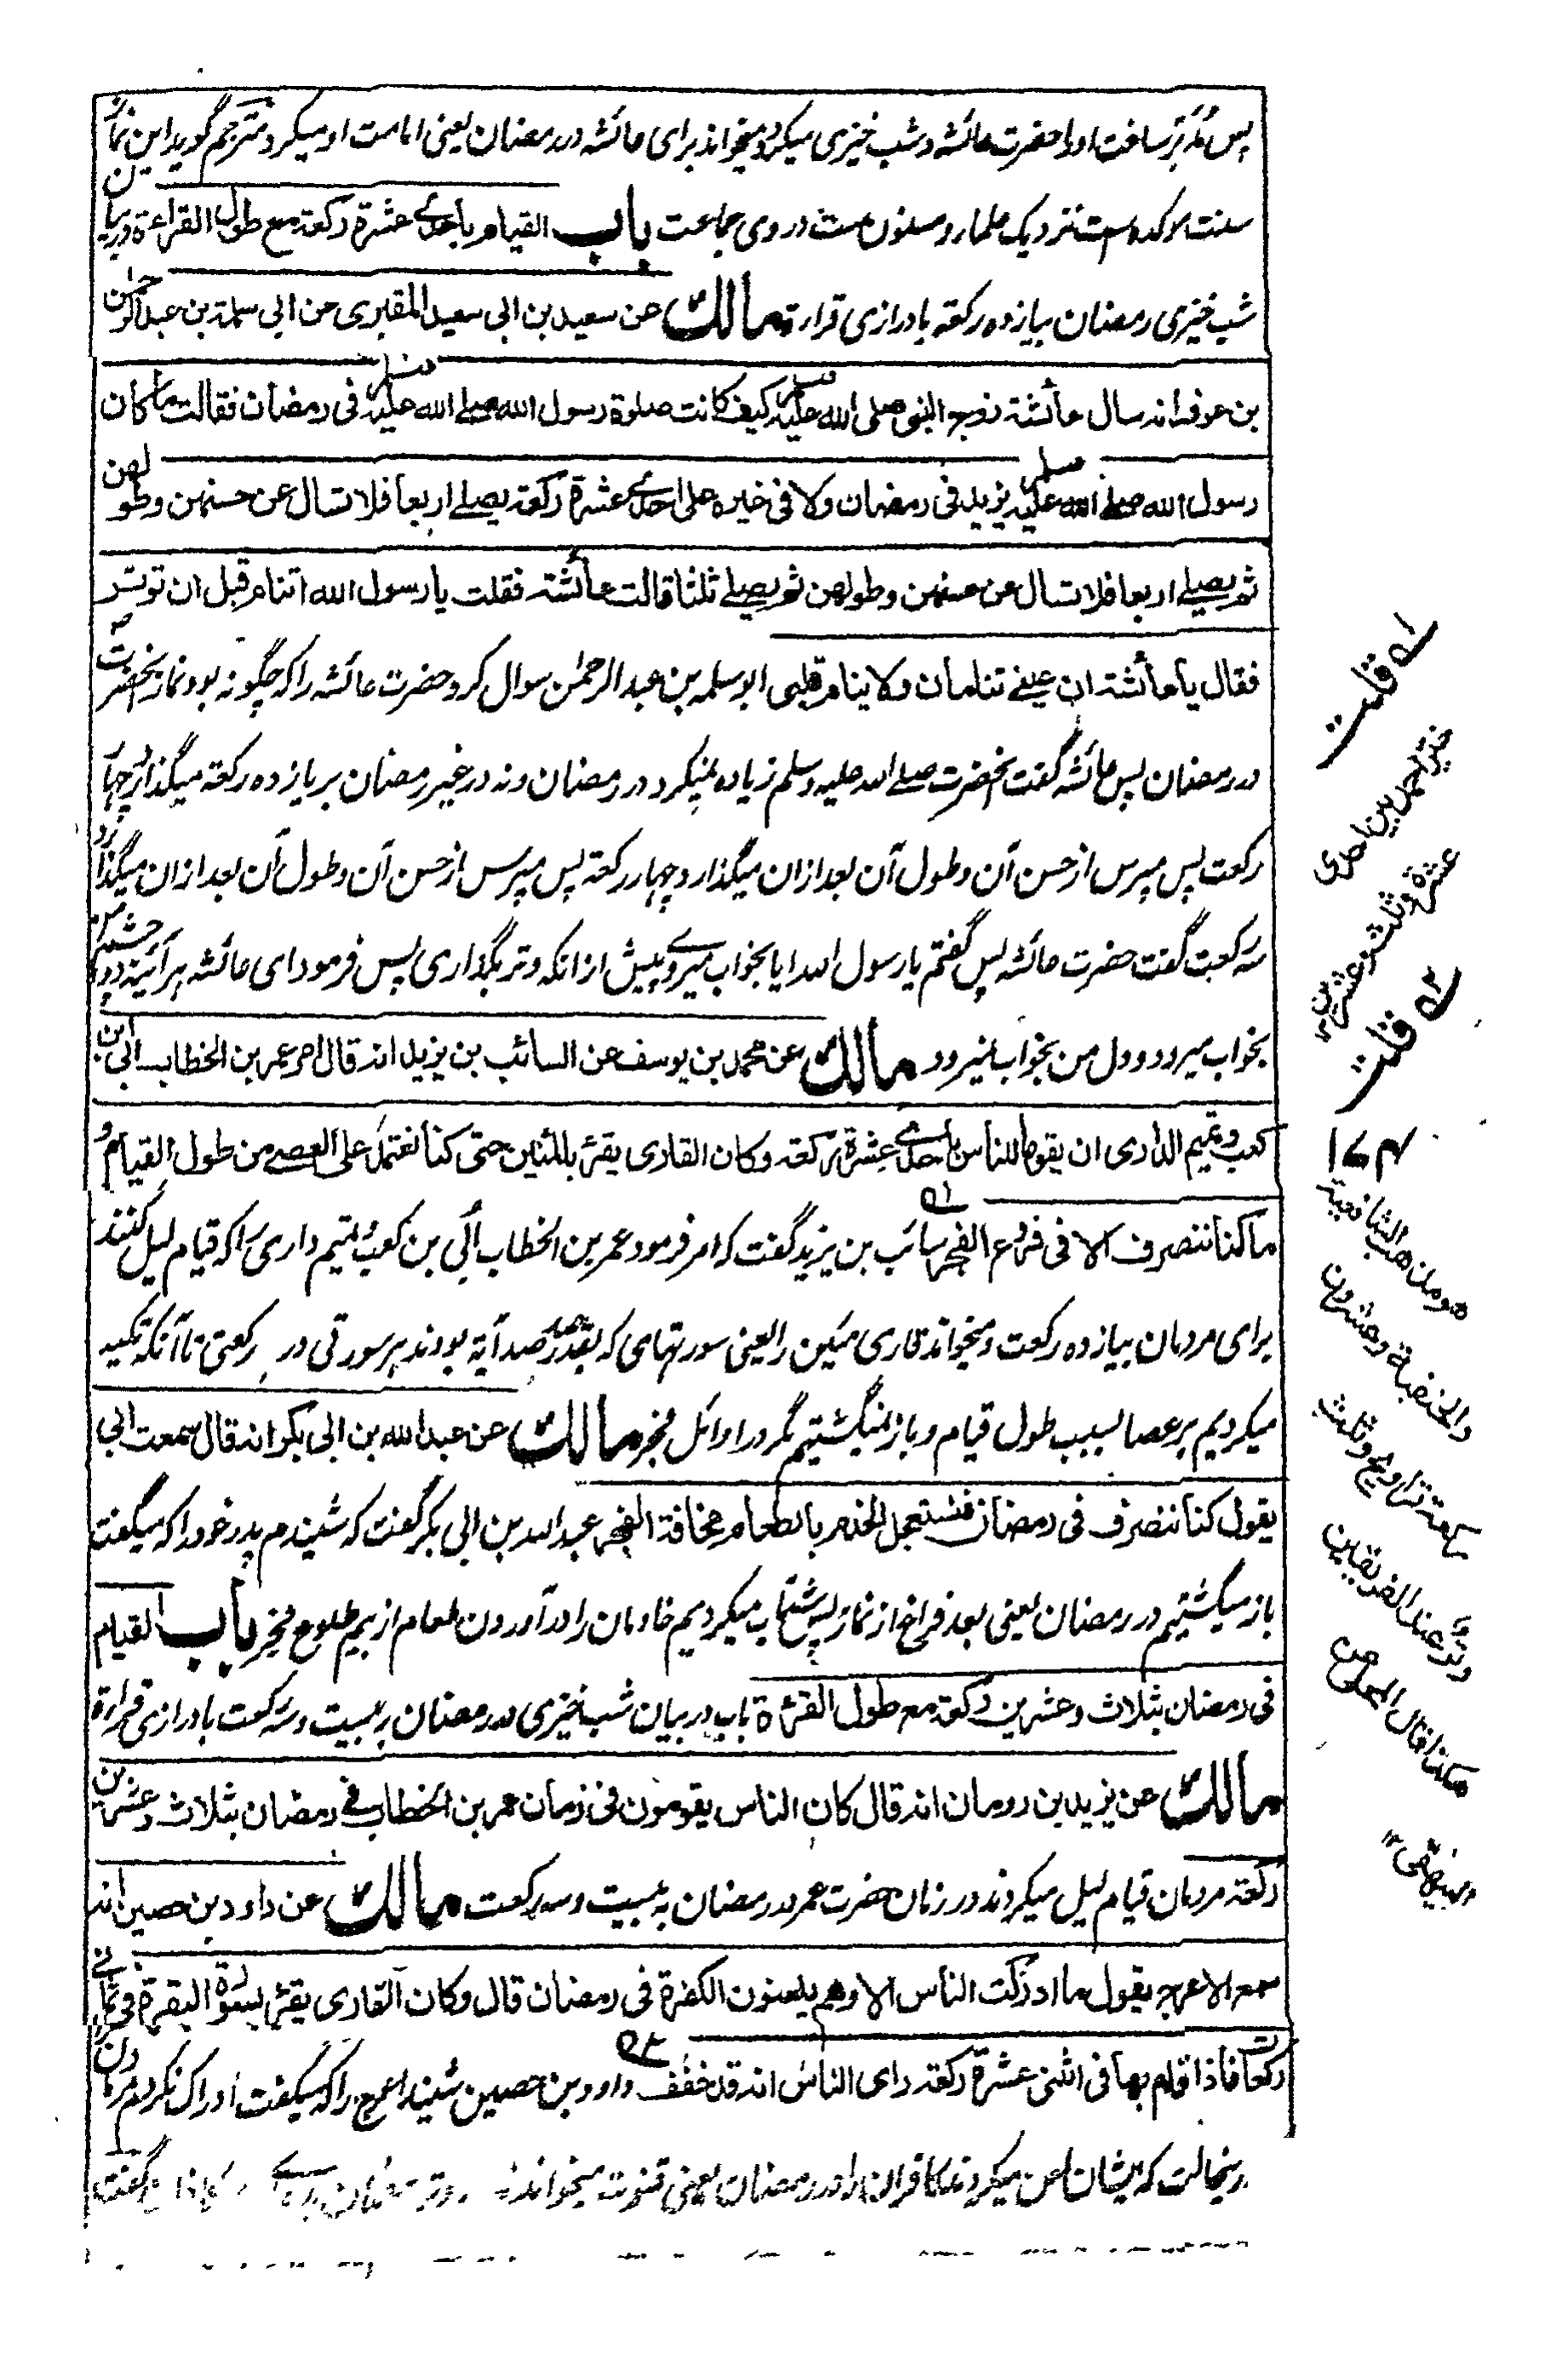 پس مدبر ساخت او را حضرت عائشه و شب خیزی میکرد و میخواند برای عائشه در رمضان یعنی امامت او میکرد مترجم گوید این نماز
سنت مؤکده است نزدیک علماء و مسنون ست در وی جماعت باب القیام باحدے عشرة رکعة مع طول القراءة در بیان
شب خیزی رمضان بیازده رکعة با درازی قراءة مالك عن سعید بن ابی سعید المقبری عن ابی سلمة بن عبد الرحمن
بن عوف انه سال عائشة زوج النبی صلی الله علیه وسلم کیف کانت صلوة رسول الله صلے الله علیه وسلم فی رمضان فقالت ما کان
رسول الله صلے الله علیه وسلم یزید فی رمضان ولا فی غیره علی احدے عشرة رکعة یصلے اربعا فلا تسال عن حسنهن وطولهن
ثم یصلے اربعا فلا تسال عن حسنهن وطولهن ثم یصلے ثلثا قالت عائشة فقلت یا رسول الله اتنام قبل ان توتر
فقال یا عائشة ان عینے تنامان ولا ینام قلبی ابو سلمه بن عبد الرحمن سوال کرد حضرت عائشه را که چگونه بود نماز آنحضرت صـ
در رمضان پس عائشه گفت آنحضرت صلے الله علیه وسلم زیاده نمیکرد در رمضان و نه در غیر رمضان بر یازده رکعة میگذارد چهار
رکعت پس مپرس از حسن آن و طول آن بعد ازان میگذارد چهار رکعة پس مپرس از حسن آن و طول آن بعد ازان میگذارد
سه رکعت گفت حضرت عائشه پس گفتم یا رسول الله آیا بخواب میروے پیش از انکه وتر بگذاری پس فرمود ای عائشه هر آئینه دو چشم من
بخواب میرود و دل من بخواب نمیرود مالك عن محمد بن یوسف عن السائب بن یزید انه قال امر عمر بن الخطاب ابی بن
کعب و تمیم الداری ان یقوما للناس باحدے عشرة رکعة وکان القاری یقرء بالمئین حتی کنا نعتمد علی العصے من طول القیام و
ما کنا ننصرف الا فی فروع الفجر سائب بن یزید گفت که امر فرمود عمر بن الخطاب ابی بن کعب و تمیم داری را که قیام لیل کنند
برای مردمان بیازده رکعت و میخواند قاری مئین را یعنی سورتهای که بقدر صد صد آیة بودند هر سورتی در رکعتی تا آنکه تکیه
میکردیم بر عصا بسبب طول قیام و باز نمیگشتیم مگر در اوائل فجر مالك عن عبد الله بن ابی بکر انه قال سمعت ابی
یقول کنا ننصرف فی رمضان فنستعجل الخدم بالطعام مخافة الفجر عبد الله بن ابی بکر گفت که شنیدم پدر خود را که میگفت
باز میگشتیم در رمضان یعنی بعد فراغ از نماز پس شتاب میکردیم خادمان را در آوردن طعام از بیم طلوع فجر باب القیام
فی رمضان بثلاث وعشرین رکعة مع طول القرءة باب در بیان شب خیزی در رمضان به بیست و سه رکعت با درازی قراءة
مالك عن یزید بن رومان انه قال کان الناس یقومون فی زمان عمر بن الخطاب فی رمضان بثلاث وعشرین
رکعة مردمان قیام لیل میکردند در زمان حضرت عمر در رمضان به بیست و سه رکعت مالك عن داود بن حصین انه
سمع الاعرج یقول ما ادرکت الناس الا وهم یلعنون الکفرة فی رمضان قال وکان القاری یقرء بسورة البقرة فی ثمانے
رکعات فاذا قام بها فی اثنی عشرة رکعة رای الناس انه قد خفف داود بن حصین شنید اعرج را که میگفت ادراک نکردم مردمان را
درینحالت که ایشان لعن میکردند کافران را در رمضان یعنی قنوت میخواندند در وتر گفت
لـه قلت
خیّر احمد بن احدی
عشرة وثلث وعشرین
لـه قلت
۱۶۲
هو مذهب الشافعیة
والحنفیة وعشرون
رکعة تراویح وثلث
وتر عند الفریقین
هکذا قال المحلی عن
البیهقی ۱۲